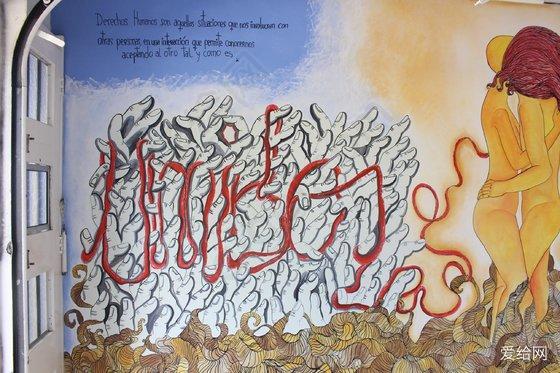 Derechos Humanos son aquellas situaciones que nos involucran con
otras personas, en una interacción que permite conocernos
aceptando al otro tal y como es.
爱给网